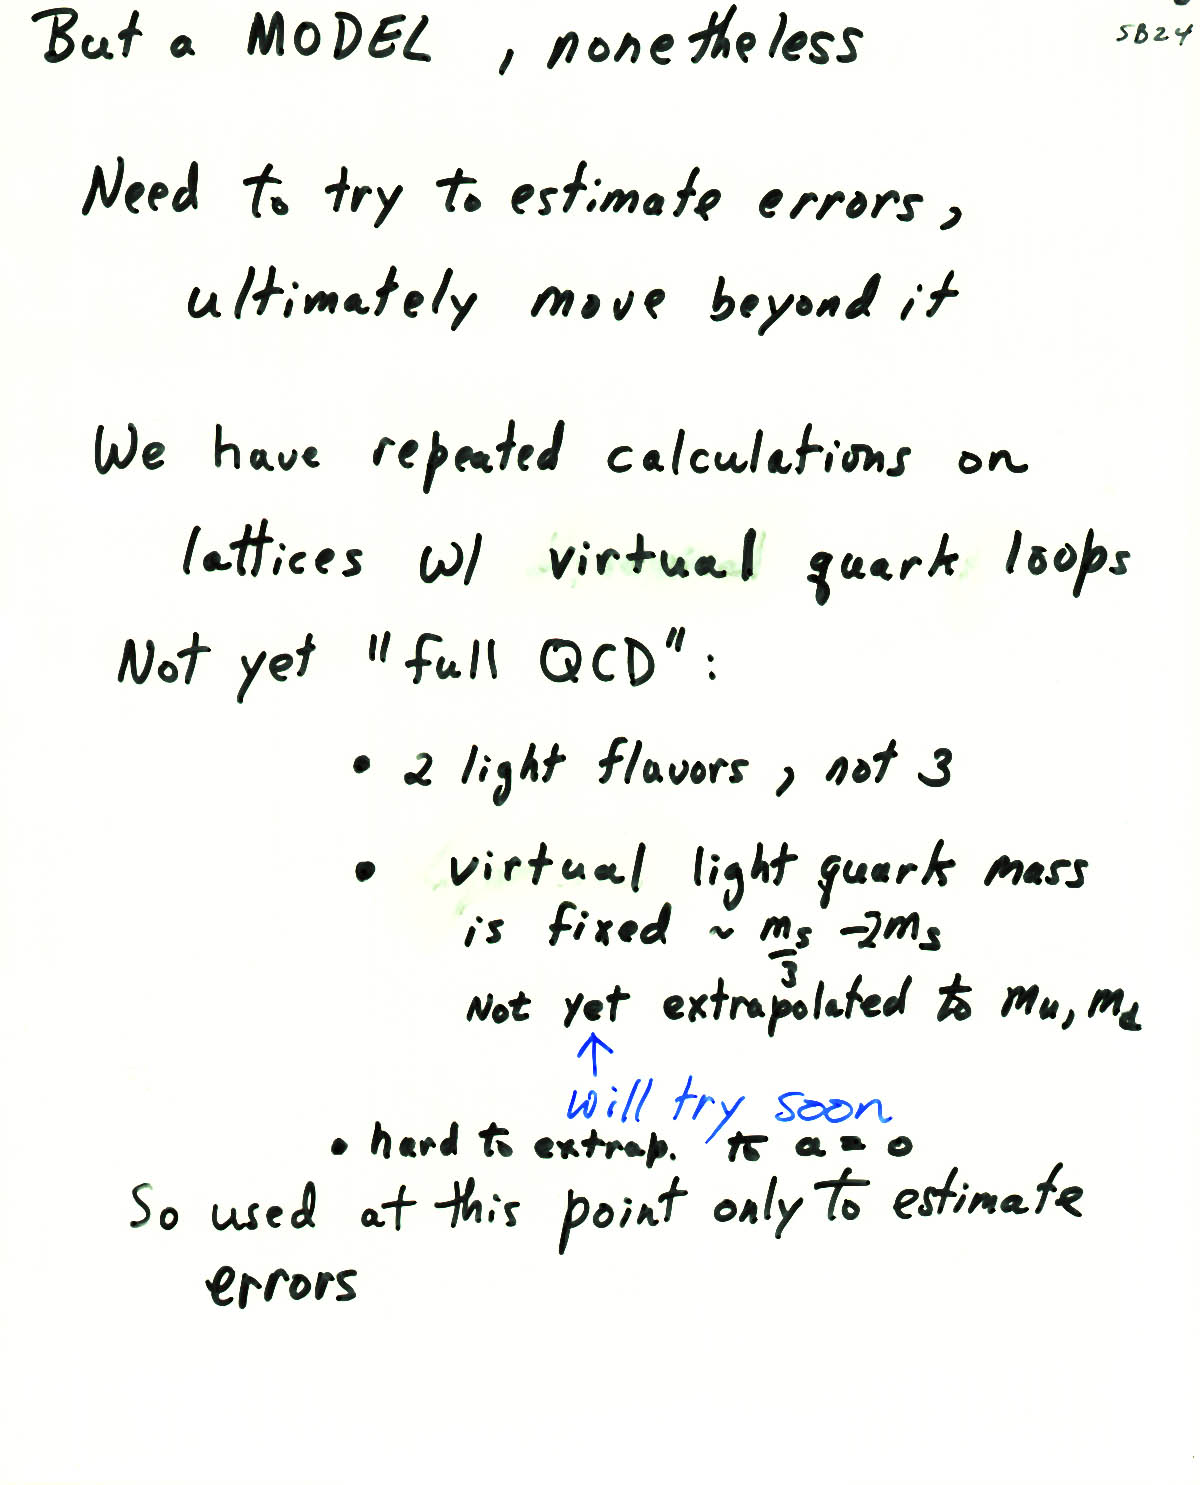 But a MODEL, nonetheless
SB24
Need to try to estimate errors,
ultimately move beyond it
We have repeated calculations on
lattices w/ virtual quark loops
Not yet "full QCD":
• 2 light flavors, not 3
• virtual light quark mass
is fixed ~ ms/3 - 2ms
Not yet extrapolated to mu, md
↑
will try soon
• hard to extrap. to a = 0
So used at this point only to estimate
errors